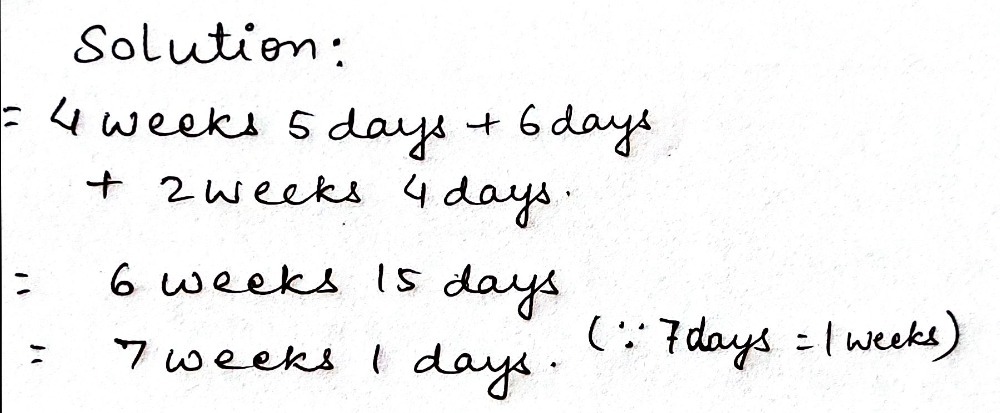 Solution:
= 4 weeks 5 days + 6 days
+ 2 weeks 4 days.
= 6 weeks 15 days
= 7 weeks 1 days. (∵ 7 days = 1 weeks)